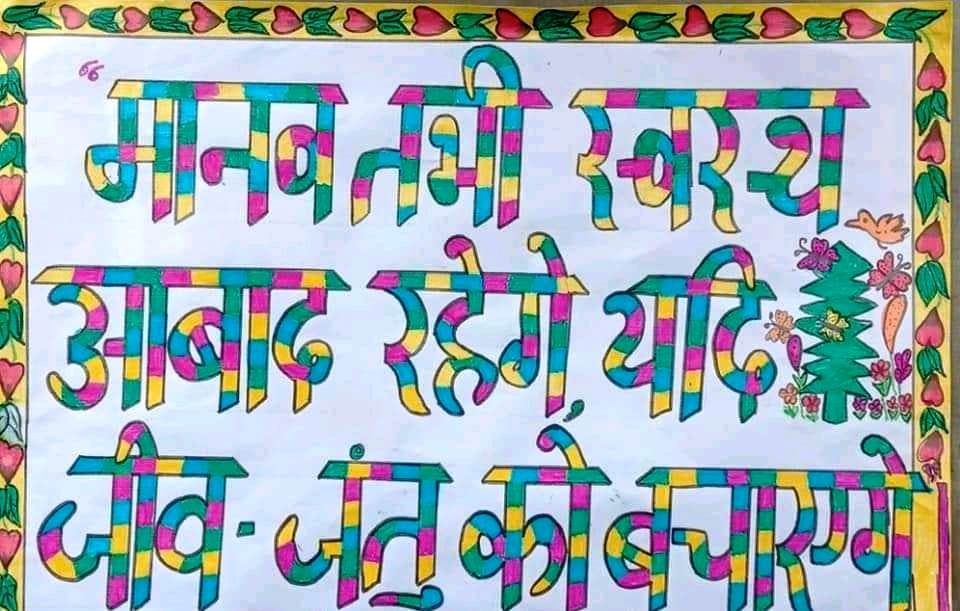 “ मानव तभी स्वस्थ
आबाद रहेगे, यदि
जीव - जंतु को बचाएगे